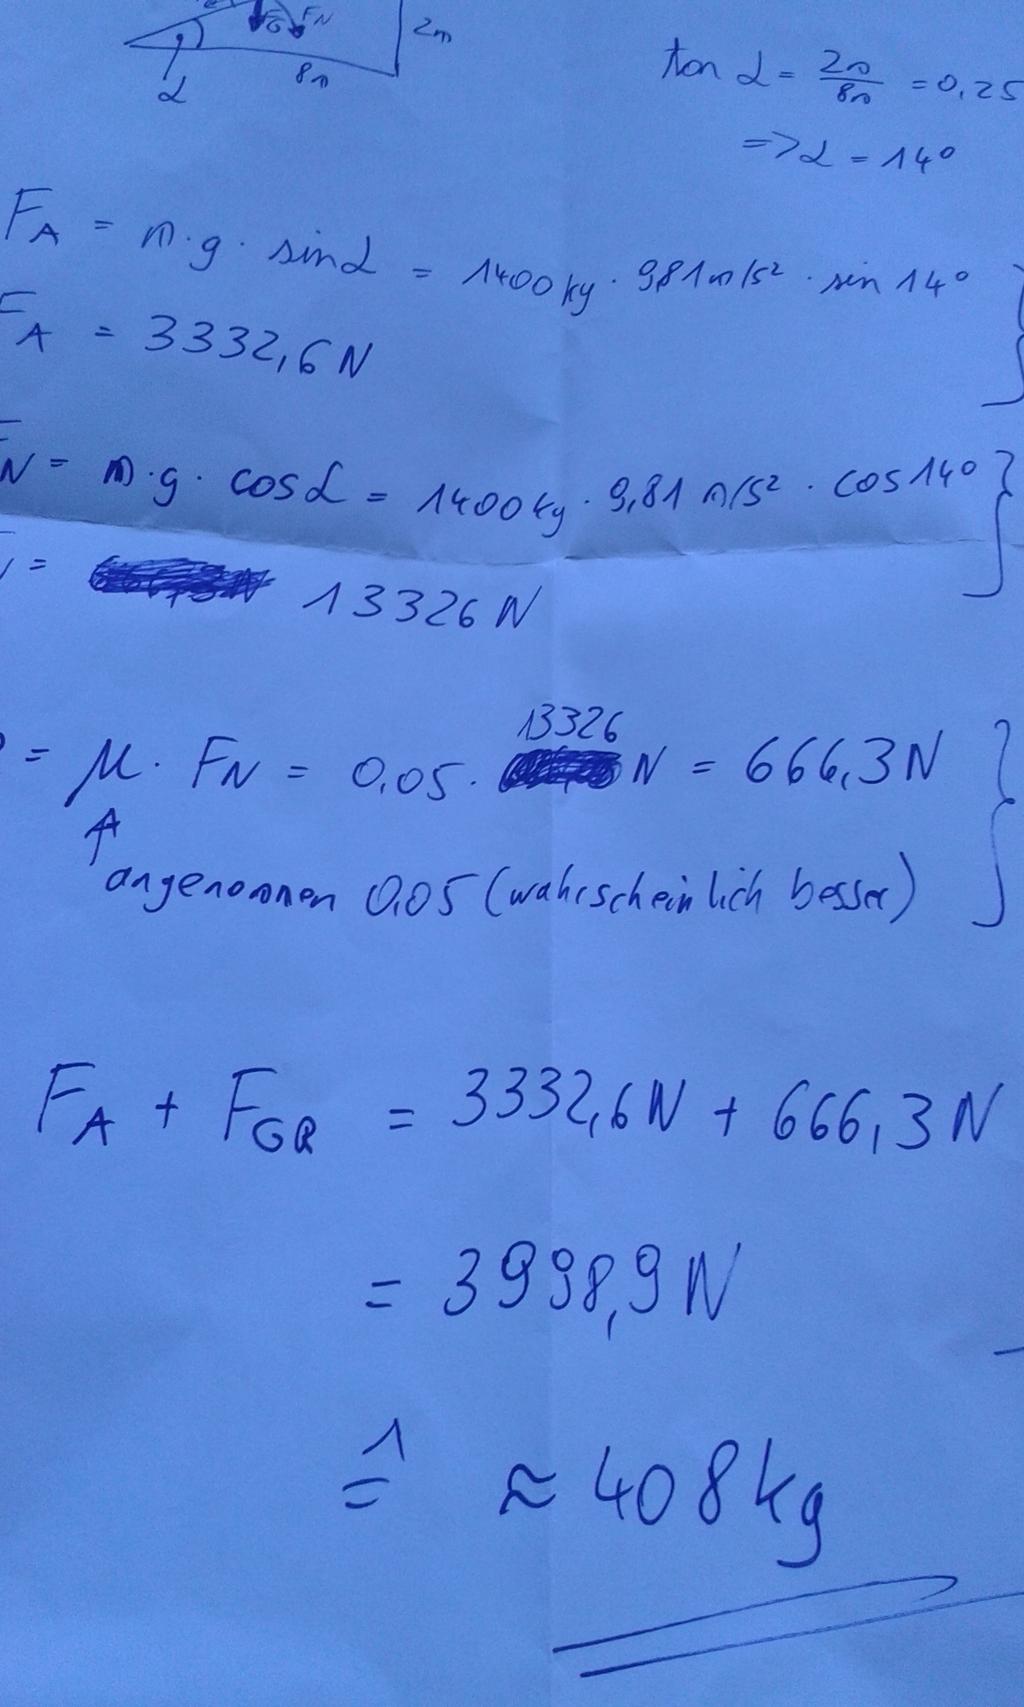 FN
2m
8m
α
tan α = 2m/8m = 0,25
=> α = 14°
FA = m·g· sinα = 1400kg · 9,81m/s² · sin 14°
FA = 3332,6N
N = m·g· cosα = 1400kg · 9,81 m/s² · cos14°
= 13326 N
13326
= μ· FN = 0,05 · N = 666,3N
angenommen 0,05 (wahrscheinlich besser)
FA + FGR = 3332,6N + 666,3N
= 3998,9N
≙ ≈ 408kg